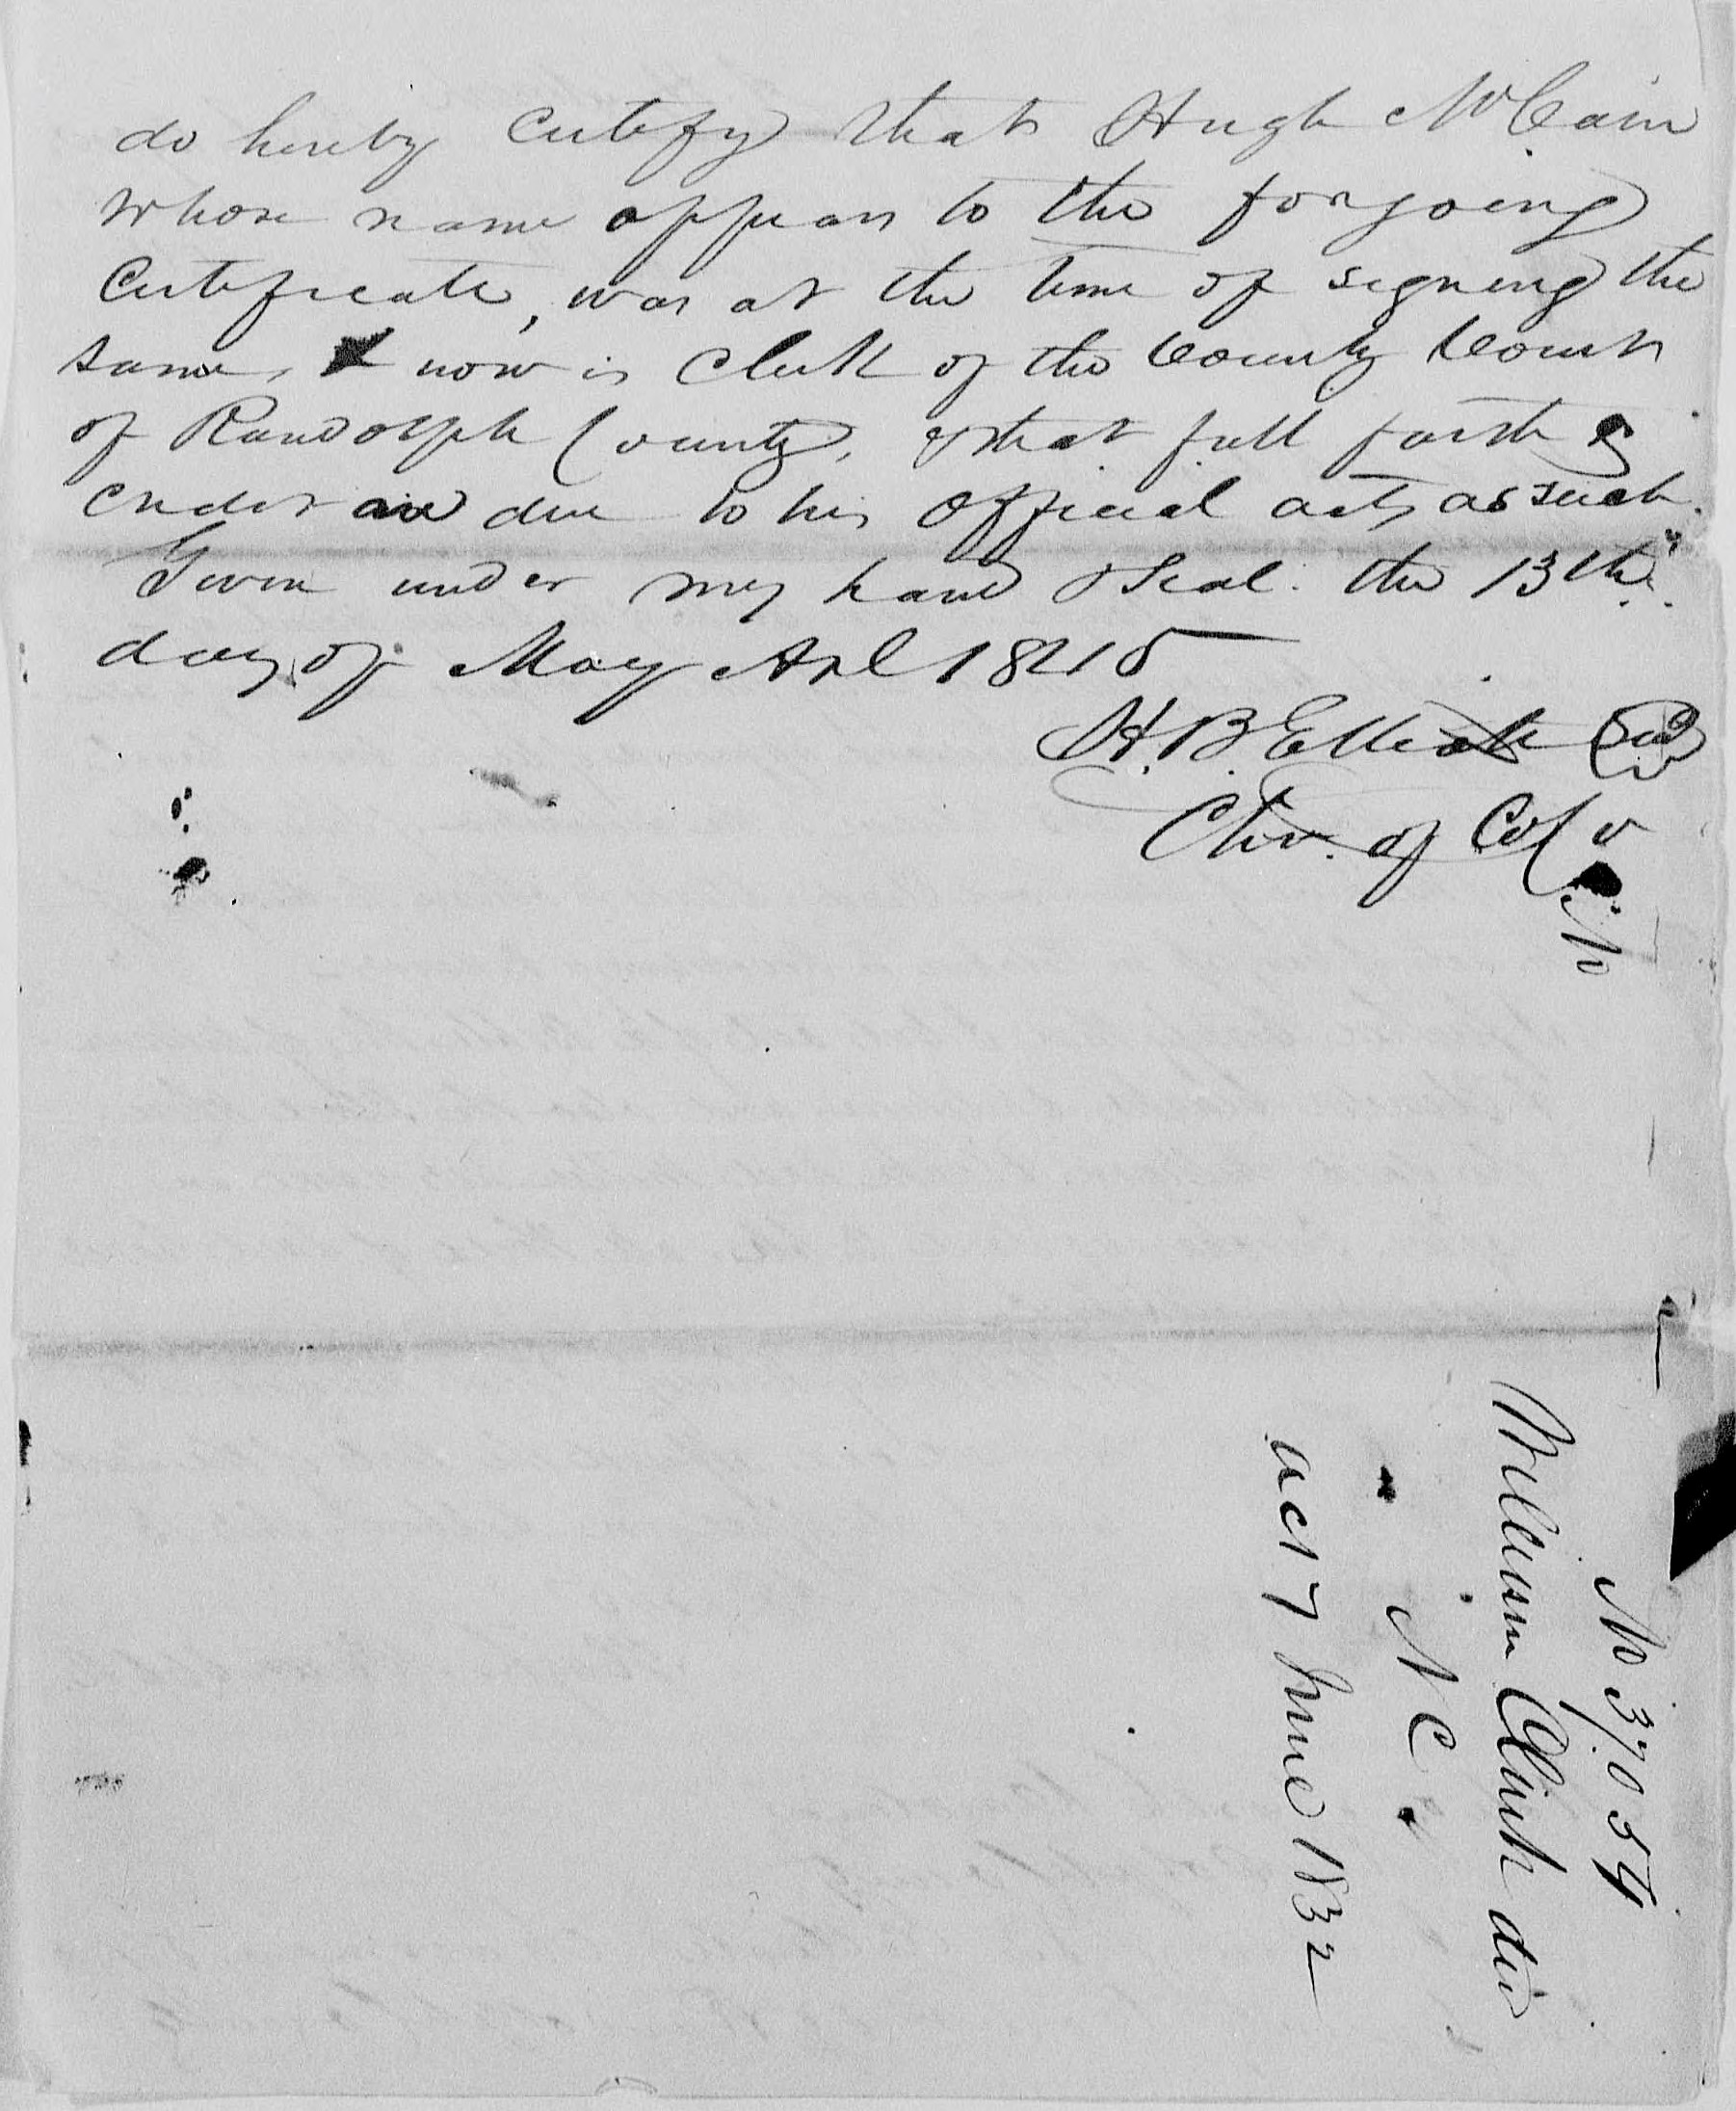 do hereby Certify that Hugh McCain
whose name appears to the forgoing
Certificate, was at the time of signing the
same, & now is Clerk of the County Court
of Randolph County, & that full faith &
credit are due to his Official acts as such.
Given under my hand & Seal. the 13th
day of May AD 1845
H. B. Elliott Seal
Chn. of Co Ct
No 37054
William Clinch
N C
act 7 June 1832